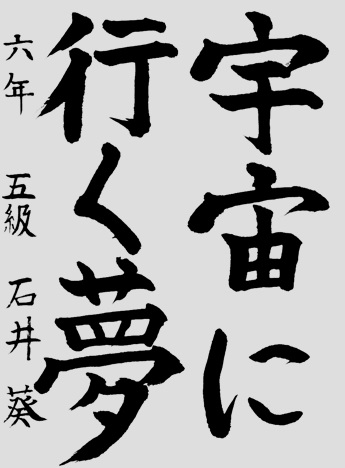 宇宙に
行く夢
六年 五級 石井 葵